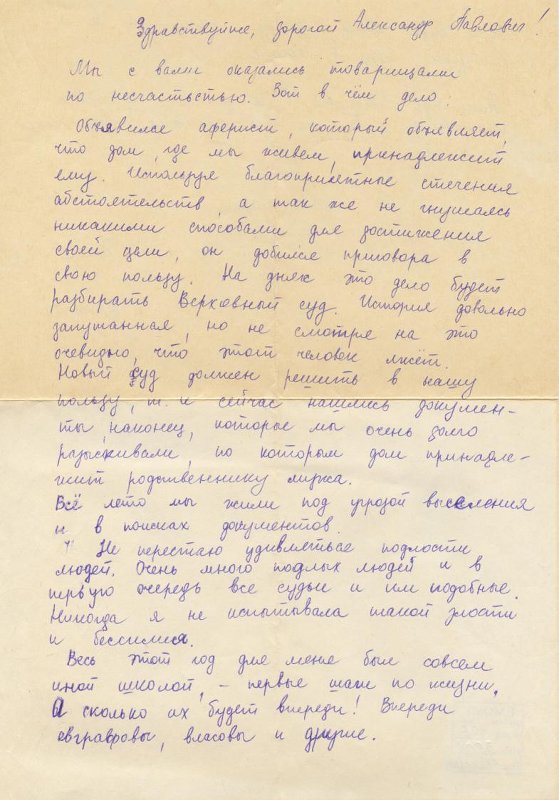 Здравствуйте, дорогой Александр Павлович!
Мы с вами оказались товарищами
по несчастьстью. Вот в чём дело:
Объявился аферист, который объявляет,
что дом, где мы живем, принадлежит
ему. Используя благоприятные стечения
абстоятельств, а так же не гнушаясь
никакими способами для достижения
своей цели, он добился приговора в
свою пользу. На днях это дело будет
разбирать Верховный суд. История довольно
запутанная, но не смотря на это
очевидно, что этот человек лжёт.
Новый суд должен решить в нашу
пользу, т. к сейчас нашлись докумен-
ты, наконец, которые мы очень долго
разыскивали, по которым дом принадле-
жит родственнику мужа.
Всё лето мы жили под угрозой выселения
и в поисках документов.
Не перестаю удивляться подлости
людей. Очень много подлых людей и в
первую очередь все судьи и им подобные.
Никогда я не испытывала такой злости
и бессилия.
Весь этот год для меня был совсем
иной школой, – первые шаги по жизни.
А сколько их будет впереди! Впереди
евграфовы, власовы и другие.